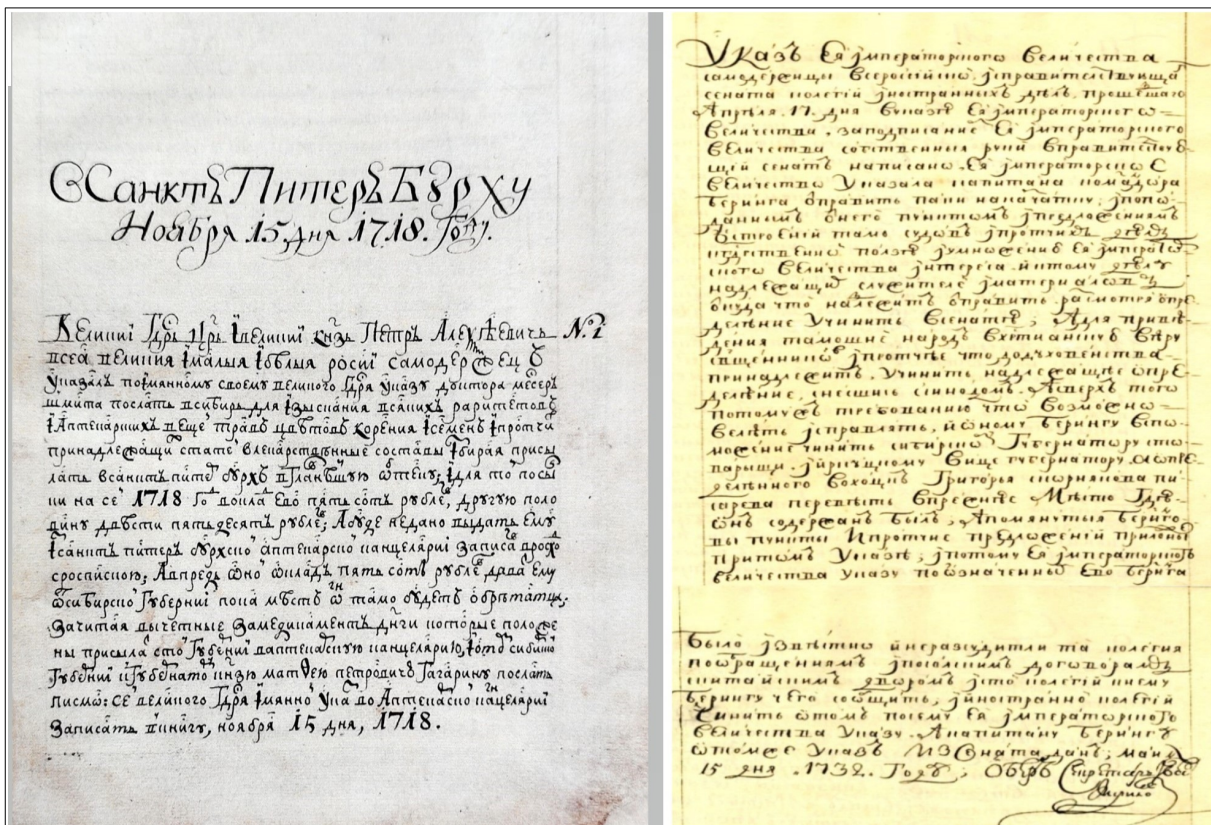 ВСанктъ Питеръ Бꙋрху
Ноября 15 дня 1718. Годꙋ.
Великиї Гдрь Црь ївеликиї кнзь Петръ Алеѯѣевичь № 1
всеа великия їмалыя їбѣлыя росиї Самодержецъ
указалъ поімянному своему великого Гдря указу доктора месеръ
шмита послать всибирь для їзыскания всякихъ раритетовъ
їАптекарскихъ веще травъ цвѣтовъ корения їсеменъ їпротчи
принадлежащи стате влекарственные составы їзбирая присы
лать всанктъ пите бурхъ вГлавнѣшую ѿтеку; їдля то посы
ки на се 1718 Го ѡкла ево пять сотъ рубле, другую поло
вину двѣсти пятьдесятъ рубле; Абуде недано выдать ему
їсанктъ питеръ бурхско аптекарско канцеляриї записа врасхо
сроспискою; Авпредь ѡно ѡкладъ пять сотъ рубле дава ему
ѿсибирско Губерниї пока мѣстъ ѡн тамо будетъ обрѣтатца.
Зачитая вычетные Замедикаментъ днги которые положе
ны присыла сто Губениї ваптекаскую канцелярию, їотд сибиско
Губениї кГубенато кнзю матѳею петровичю Гагарину послать
писмо: Се великого Гдря імянно Ука во Аптекаско канцеляриї
Записать вкнигу, ноября 15 дня, 1718.
Указъ Ея їмператорского Величества
самодержицы Всеросиїско їсправителствующа
сената колегиї їностранныхъ дѣлъ. прошедшаго
Апреля. 17. дня вуказе Ея їмператорског о
Величества. заподписание Ея їмператорского
Величества собственныя руки вправителству
щей сенатъ написано. Ея їмператорско е
величество Указала капитана командора
беринга ѡправить паки накамчатку; їпопо
даннымъ ѡнего пунктомъ їпредложениямъ
ѡстроениї тамо судовъ їпротчихъ делъ
кгдственно ползе їумножению Ея їмперато
ского Величества їнтереса. їктому делу
надлежащиї служителе їматериаловъ
ѡкуда что надлежитъ ѡправить. расмотря опре
деление Учинить всенате; Адля приве
дения тамошне народъ вхристианскую вѣру
свещенниковъ їпротчее что додуховенства
принадлежитъ. Учинить надлежащее опре
деление, снесшись ссинодомъ. Асверхъ того
потомужъ требованию что возможно
Велѣть їсправлять, иѡному берингу вспо
можение чинить сибирско Губернатору сто
варыщи. їиркуцкому вице губернатору. Аопре
деленного вохоцкъ Григорья скорнякова пи-
сарева перевесть впрежнее мѣсто Где
ѡнъ содержан былъ; Апомянутыя беринго
вы пункты їпротчие предложениї приложены
притомъ Указе; їпотому Ея їмператорского
величества Указу поѡзначенныї ево беринга
было їзвѣстно инеразсудитли та колегия
пообращениямъ їпоколикимъ договорамъ
скитаискимъ дворомъ їсто колегиї кнему
берингу чего сообщить, їиностранно колегиї
Чинить ѡтомъ посему Ея їмператорского
величества Указу. Акапитану берингу
ѡтомже Указъ ИзСената данъ; маия
15 дня .1732. Году; Оберъ Секретарь